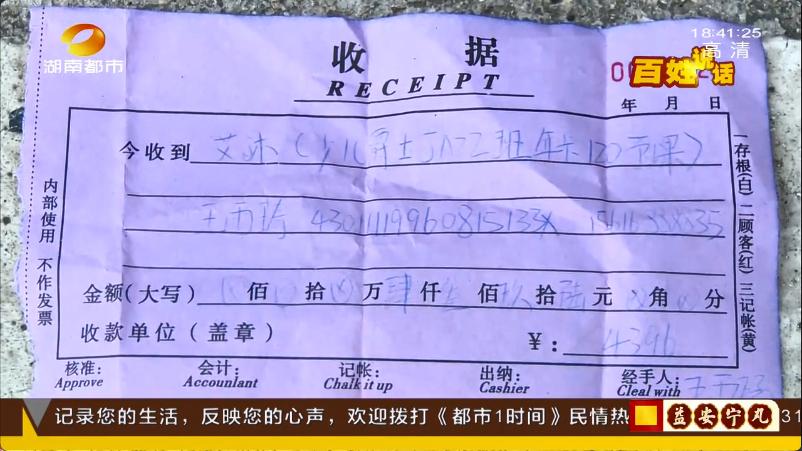 湖南都市
18:41:25
高清
百姓说话
收据
RECEIPT
年 月 日
今收到 艾沐(少儿爵士JAZZ班年卡120节课)
43011119960815133X
金额(大写) 佰 拾 万 肆 仟 叁 佰 玖 拾 陆 元 角 分
收款单位(盖章) ¥: 4396
核准: 会计: 记帐: 出纳: 经手人:
Approve Accountant Chalk it up Cashier Cleal with
内部使用 不作发票
一存根(白)二顾客(红)三记帐(黄)
记录您的生活，反映您的心声，欢迎拨打《都市1时间》民情热
益安宁丸
31